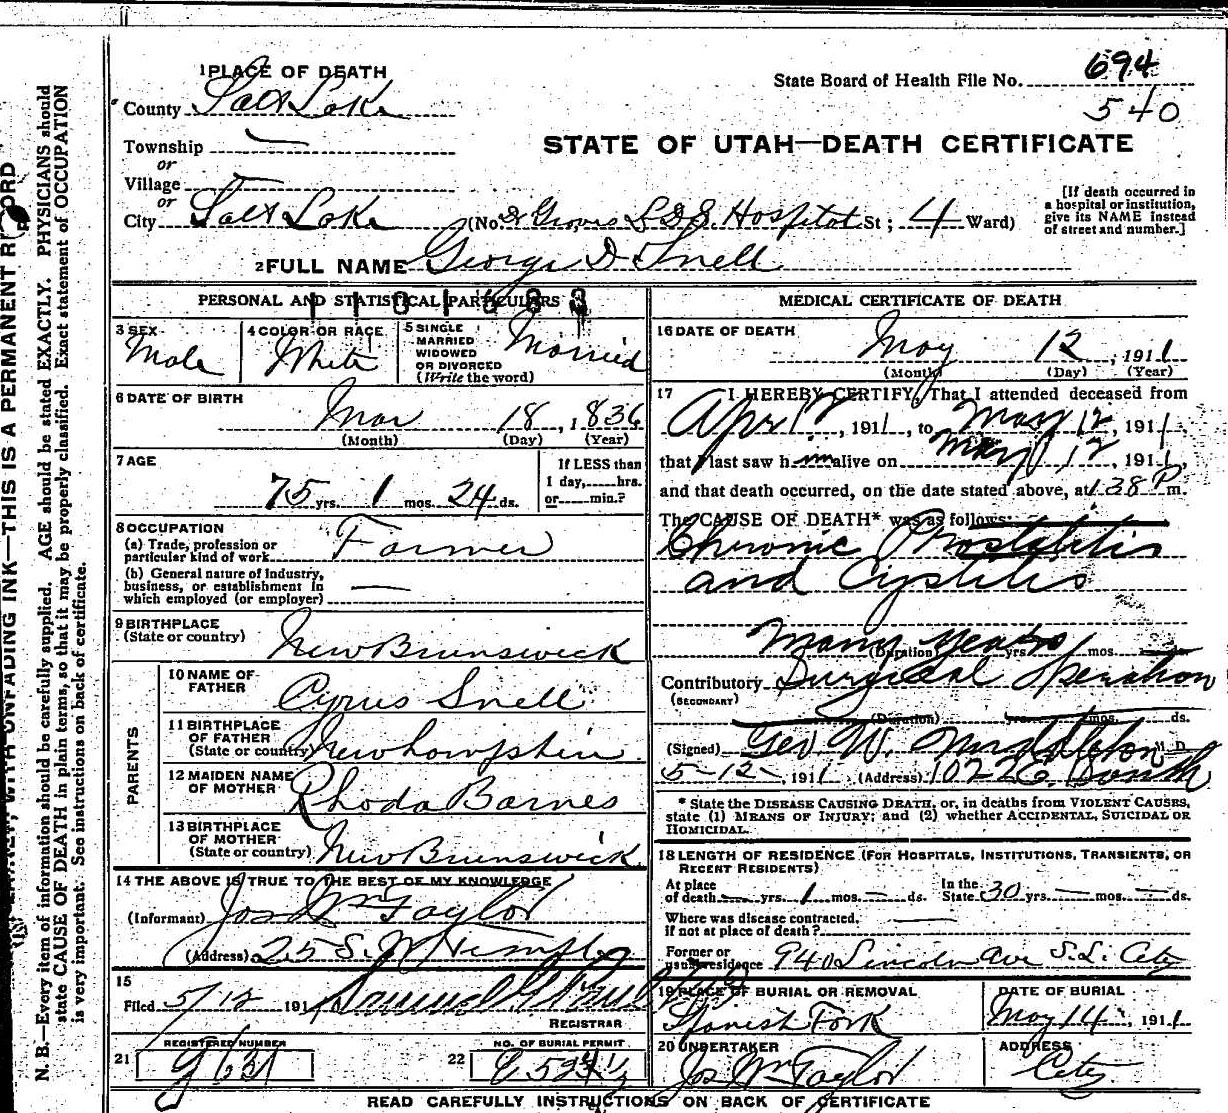 1 PLACE OF DEATH
State Board of Health File No. 694
County Salt Lake
540
Township —
STATE OF UTAH—DEATH CERTIFICATE
or
Village —
or
City Salt Lake (No. Dr Groves L.D.S. Hospital St; 4 Ward)
[If death occurred in
a hospital or institution,
give its NAME instead
of street and number.]
2 FULL NAME George D Snell
PERSONAL AND STATISTICAL PARTICULARS
3 SEX
Male
4 COLOR OR RACE
White
5 SINGLE
MARRIED
WIDOWED
OR DIVORCED
(Write the word)
Married
6 DATE OF BIRTH
Mar 18, 1836
(Month) (Day) (Year)
7 AGE
75 yrs. 1 mos. 24 ds.
If LESS than
1 day, hrs.
or min.?
8 OCCUPATION
(a) Trade, profession or
particular kind of work Farmer
(b) General nature of industry,
business, or establishment in
which employed (or employer) —
9 BIRTHPLACE
(State or country) New Brunswick
PARENTS
10 NAME OF
FATHER Cyrus Snell
11 BIRTHPLACE
OF FATHER
(State or country) Newhampshire
12 MAIDEN NAME
OF MOTHER Rhoda Barnes
13 BIRTHPLACE
OF MOTHER
(State or country) New Brunswick
14 THE ABOVE IS TRUE TO THE BEST OF MY KNOWLEDGE
(Informant) Jos Wm Taylor
(Address) 25 S. W Temple
15
Filed 5/12 191
REGISTRAR
REGISTERED NUMBER
21
NO. OF BURIAL PERMIT
22
MEDICAL CERTIFICATE OF DEATH
16 DATE OF DEATH
May 12, 1911
(Month) (Day) (Year)
17 I HEREBY CERTIFY, That I attended deceased from
Apr 12, 1911, to May 12, 1911,
that I last saw him alive on May 12, 1911,
and that death occurred, on the date stated above, at 1.38 P m.
The CAUSE OF DEATH* was as follows:
Chronic Prostatitis
and Cystitis
Many years
(Duration) yrs. mos.
Contributory Surgical Operation
(SECONDARY)
(Duration) yrs. mos. ds.
(Signed) Geo. W. Middleton M. D.
5-12-, 1911 (Address) 102 2 E. South
* State the DISEASE CAUSING DEATH, or, in deaths from VIOLENT CAUSES,
state (1) MEANS OF INJURY; and (2) whether ACCIDENTAL, SUICIDAL OR
HOMICIDAL.
18 LENGTH OF RESIDENCE (FOR HOSPITALS, INSTITUTIONS, TRANSIENTS, OR
RECENT RESIDENTS)
At place
of death — yrs. 1 mos. — ds.
In the
State 30 yrs. — mos. — ds.
Where was disease contracted,
if not at place of death? —
Former or
usual residence 940 Lincoln Ave S.L. City
19 PLACE OF BURIAL OR REMOVAL
Spanish Fork
DATE OF BURIAL
May 14, 1911
20 UNDERTAKER
Jos Wm Taylor
ADDRESS
City
READ CAREFULLY INSTRUCTIONS ON BACK OF CERTIFICATE
N. B.—Every item of information should be carefully supplied. AGE should be stated EXACTLY. PHYSICIANS should
state CAUSE OF DEATH in plain terms, so that it may be properly classified. Exact statement of OCCUPATION
is very important. See instructions on back of certificate.
WITH UNFADING INK—THIS IS A PERMANENT RECORD